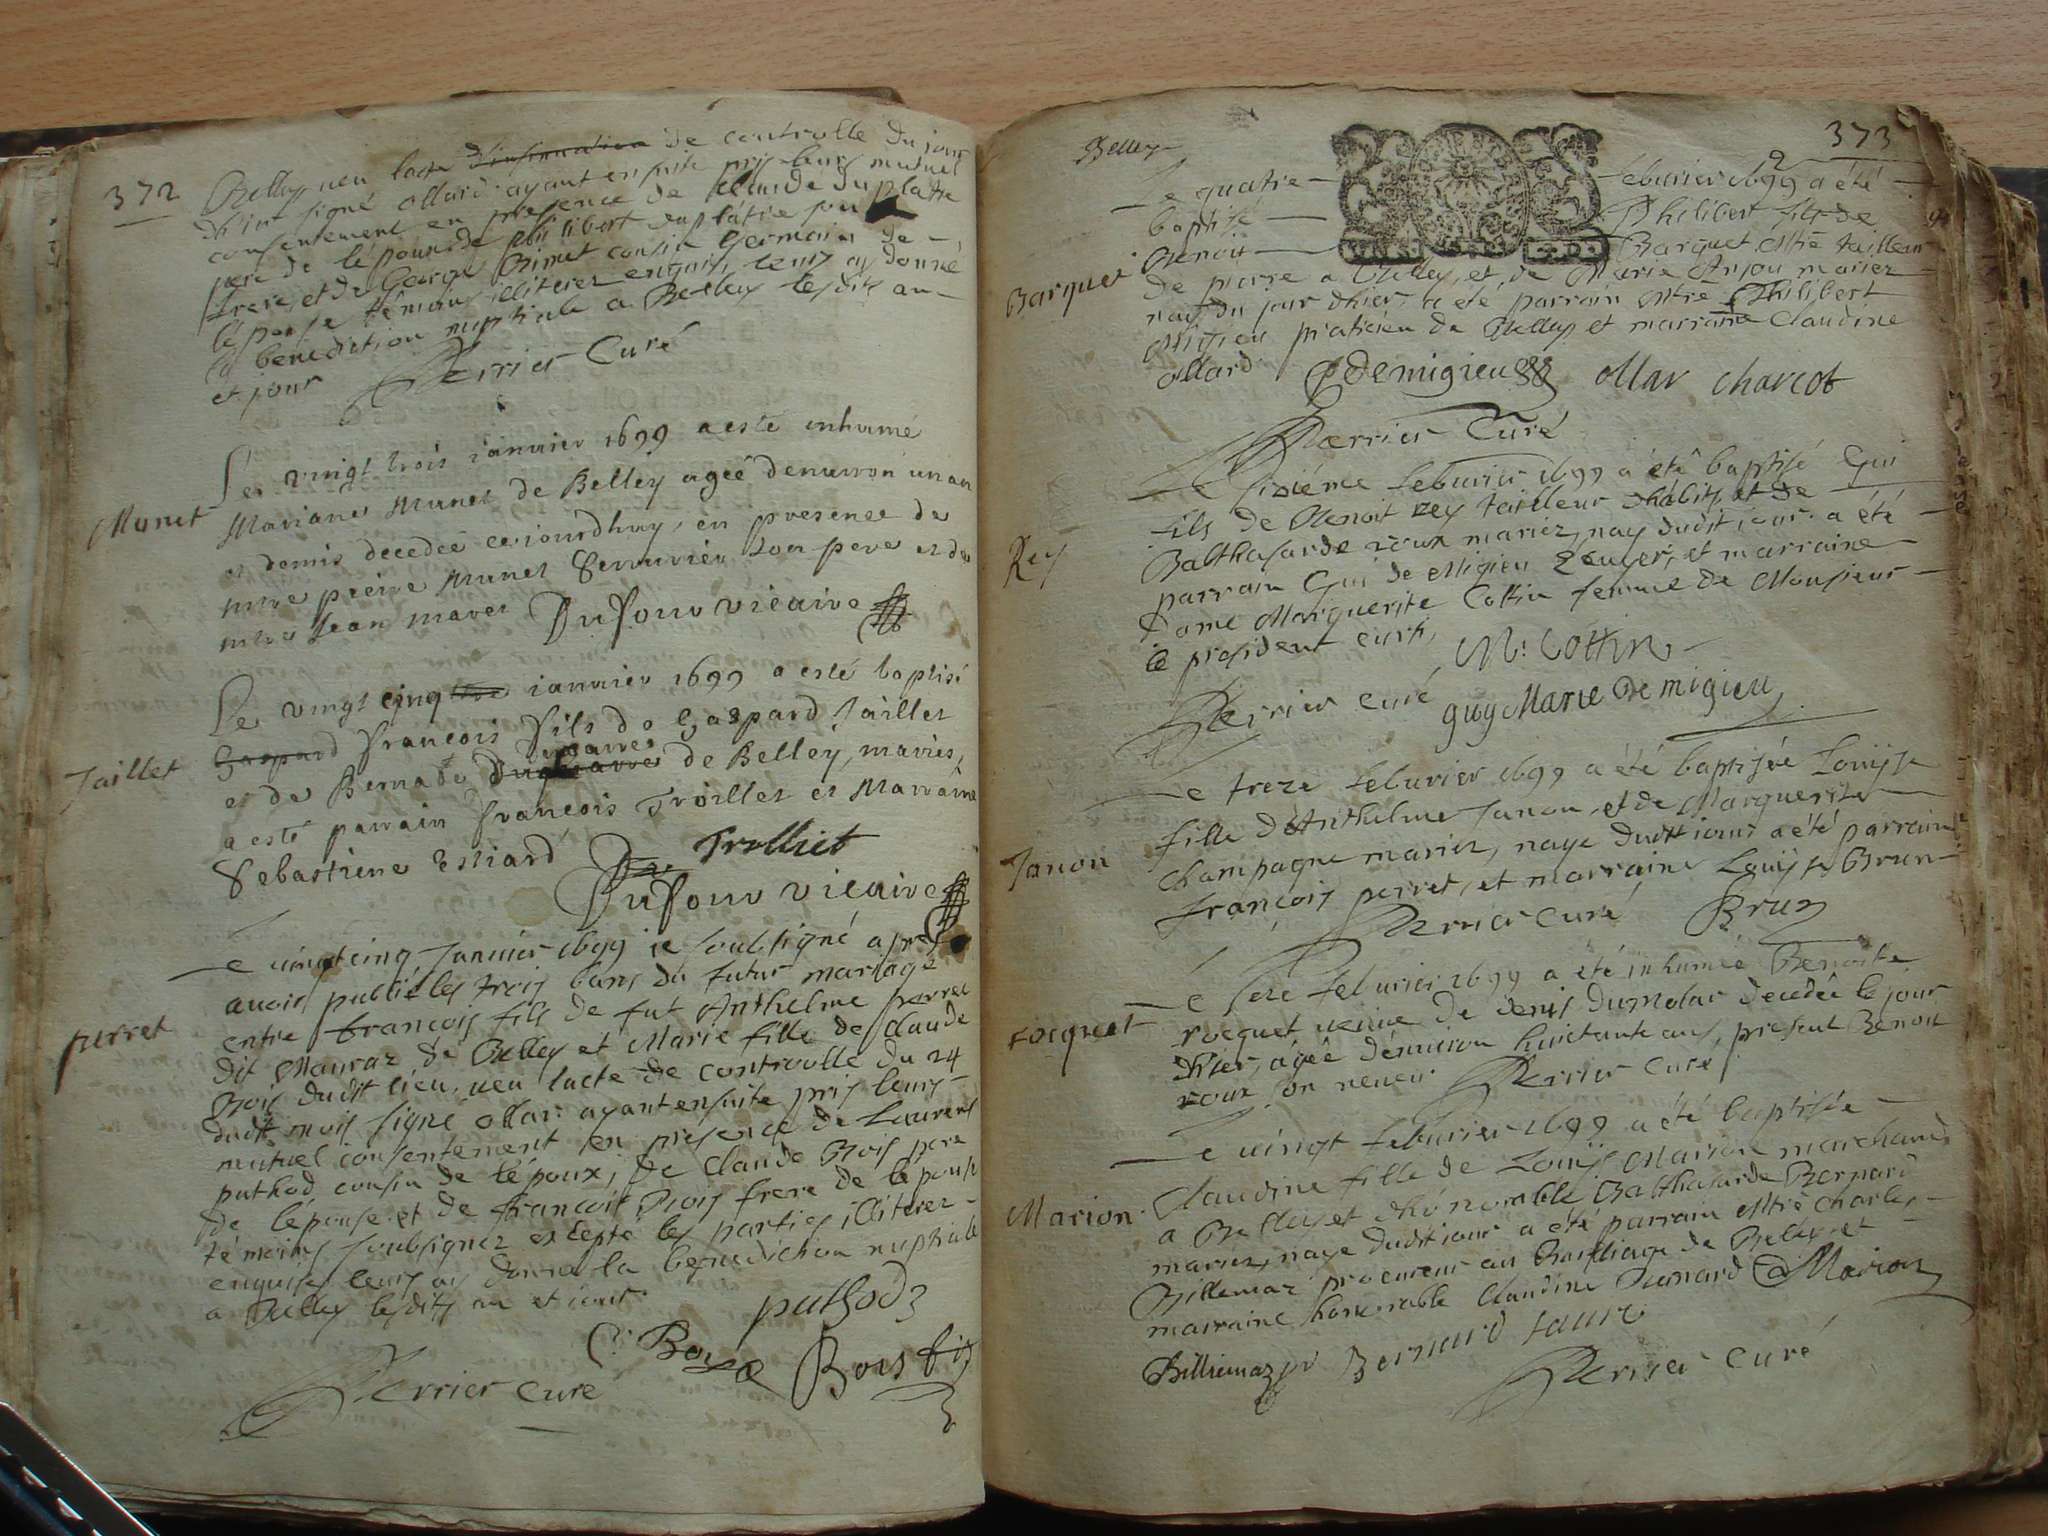 372
Belley veu lacte d'insinuation de controlle du jour
d'hier signé ollard ayant ensuite pris leurs mutuel
consentement en presence de Claude Duplatre
pere de l'épouse de philibert duplatre son
frere, et de George Binet cousin germain de
l'épouse témoins illiterez enquis, leurs ay donné
la benediction nuptiale a Belley lesdits an
et jour Perrier Curé
Munet
Le vingt trois ianvier 1699 a esté inhumé
Mariane Munet de Belley agée denuiron un an
et demis decedée ceiourdhuy, en presence de
mtre pierre Munet Serrurier son pere et de
mtre Jean maret Dufour vicaire
Jaillet
Le vingt cinq ianvier 1699 a esté baptisé
Gaspard francois fils de Gaspard Jaillet
et de Bernade de Belley, mariés,
a esté parrain francois Trolliet et Marraine
Sebastiene Estiard Trolliet
Dufour vicaire
perret
Le vingt cinq Januier 1699 ie soubsigné apres
auoir publié les trois bans du futur mariage
entre francois fils de fut Anthelme perret
dit Mauraz de Belley et Marie fille de Claude
Bois dudit lieu, veu lacte de controolle du 24
dudit mois signé ollar ayant ensuite pris leurs
mutuel consentement en presence de Laurent
puthod cousin de l'époux, de Claude Bois pere
de l'épouse et de francois Bois frere de l'épouse
témoins soubsignez excepté les parties illiterez
enquises leurs ay donné la benediction nuptiale
a Belley lesdits an et iour puthod
C: Boys Bois fis
Perrier curé
373
Belley
Le quatre feburier 1699 a été
baptisé Philibert fils de
Benoit Barquet Mtre tailleur
Barquet
de pierre a Belley, et de Marie Anjou mariez
nay du jour d'hier, a été parrain Mtre Philibert
Migieu praticien de Belley et marraine Claudine
ollard Demigieu ollar charcot
Perrier Curé
Le sixiéme feburier 1699 a été baptisé Gui
Rey
fils de Benoit rey tailleur d'habits et de
Balthasarde roux mariez, nay dudit iour a été
parrain Gui de Migieu Ecuyer, et marraine
Dame Marguerite Cottin femme de Monsieur
le president curti, M: Cottin
Perrier curé guy Marie De migieu
Le treze feburier 1699 a été baptisée Louyse
Janon
fille d'Anthelme Janon, et de Marguerite
champagne mariez, naye dudit iour a été parrain
francois perret, et marraine Louyse Brun
Perrier curé Brun
Le seze feburier 1699 a été inhumée Benoite
rocquet
rocquet veuve de denis dumolar decedée le jour
d'hier, agée d'enuiron huictante ans, present Benoit
roux son neveu Perrier curé
Le vingt feburier 1699 a été baptisée
Marion
Claudine fille de Louys Marion marchand
a Belley et d'honorable Balthasarde Bernard
mariez, naye dudit iour a été parrain Mtre Charles
Billiemaz procureur au Bailliage de Belley et
marraine honorable Claudine Bernard Marion
Billiemaz pr Bernard faure
Perrier curé